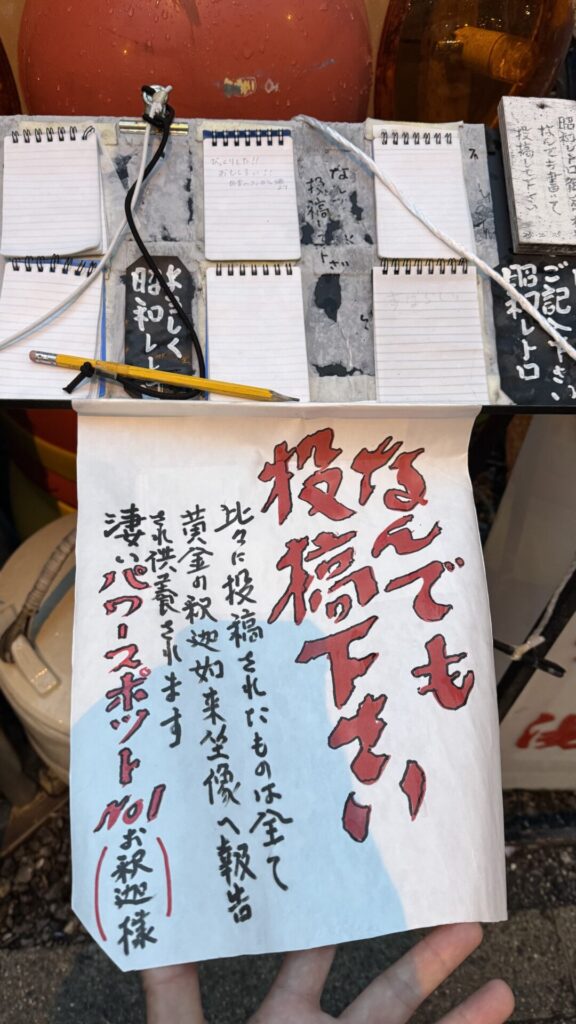 なんでも
投稿下さい
此々に投稿されたものは全て
黄金の釈迦如来坐像へ報告
され供養されます
凄いパワースポットNO1(お釈迦様)
昭和レトロ
なんでも書いて
投稿して下さい
ご記入下さい
昭和レトロ
なんでも
投稿して下さい
びっくりした!!
おもしろい!!
昭和レトロ